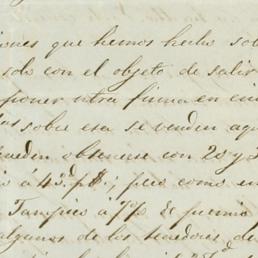 iones que hemos hecho sob
solo con el objeto de salir
poner otra firma en cir
sobre esa se venden aqu
pueden obtenerse con 20 y
á 43.d p$.; pero como
Tampico á 7% de premio
algunos de los tenedores de